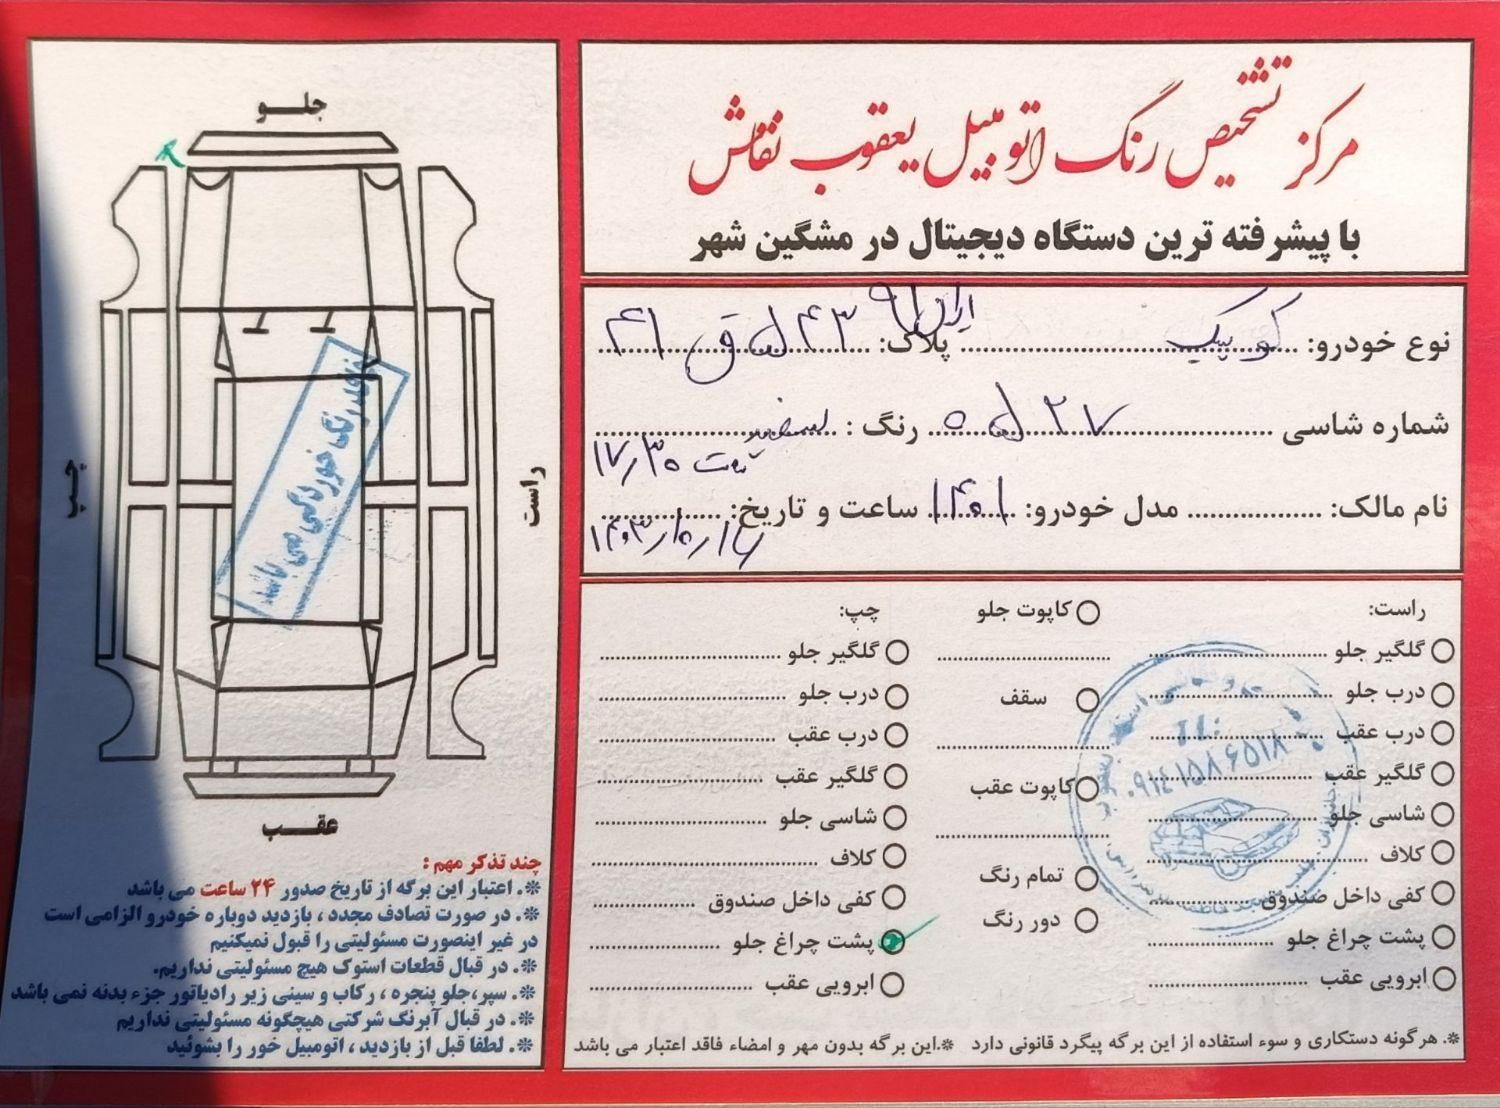 مرکز تشخیص رنگ اتومبیل یعقوب نقاش
با پیشرفته ترین دستگاه دیجیتال در مشگین شهر
نوع خودرو: کوییک پلاک: ۴۱ ق ۵۴۳ ایران ۹۱
شماره شاسی ۵۵۲۷ رنگ: سفید
ساعت ۱۷٫۳۰
نام مالک: مدل خودرو: ۱۴۰۱ ساعت و تاریخ:
راست:
گلگیر جلو
درب جلو
درب عقب
گلگیر عقب
شاسی جلو
کلاف
کفی داخل صندوق
پشت چراغ جلو
ابرویی عقب
کاپوت جلو
سقف
کاپوت عقب
تمام رنگ
دور رنگ
چپ:
گلگیر جلو
درب جلو
درب عقب
گلگیر عقب
شاسی جلو
کلاف
کفی داخل صندوق
پشت چراغ جلو
ابرویی عقب
۰۹۱٤۱۵۸۶۵۱۸
※. هرگونه دستکاری و سوء استفاده از این برگه پیگرد قانونی دارد ※.این برگه بدون مهر و امضاء فاقد اعتبار می باشد
جلـــو
راست
چپ
فاقد رنگ خوردگی می باشد
عقـــب
چند تذکر مهم :
※. اعتبار این برگه از تاریخ صدور ۲۴ ساعت می باشد
※. در صورت تصادف مجدد ، بازدید دوباره خودرو الزامی است
در غیر اینصورت مسئولیتی را قبول نمیکنیم
※. در قبال قطعات استوک هیچ مسئولیتی نداریم.
※. سپر،جلو پنجره ، رکاب و سینی زیر رادیاتور جزء بدنه نمی باشد
※. در قبال آبرنگ شرکتی هیچگونه مسئولیتی نداریم
※. لطفا قبل از بازدید ، اتومبیل خور را بشوئید